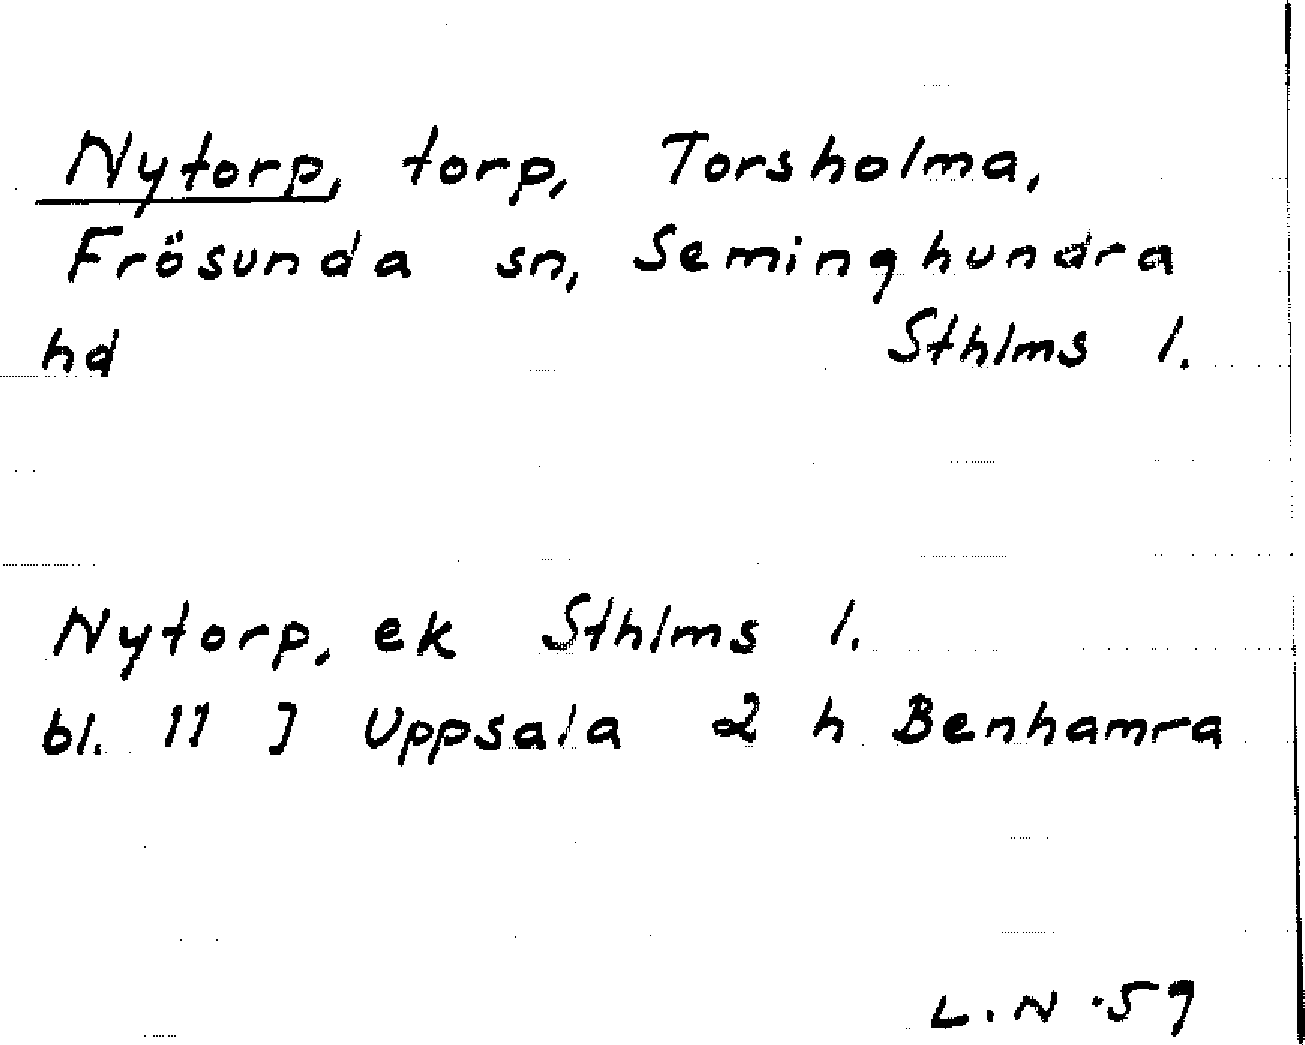 Nytorp, torp, Torsholma,
Frösunda sn, Seminghundra
hd Sthlms l.
Nytorp, ek Sthlms l.
bl. 11 J Uppsala 2 h Benhamra
L.N.59